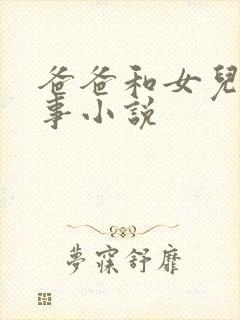 爸爸和女兒
事小說
夢寐舒靡